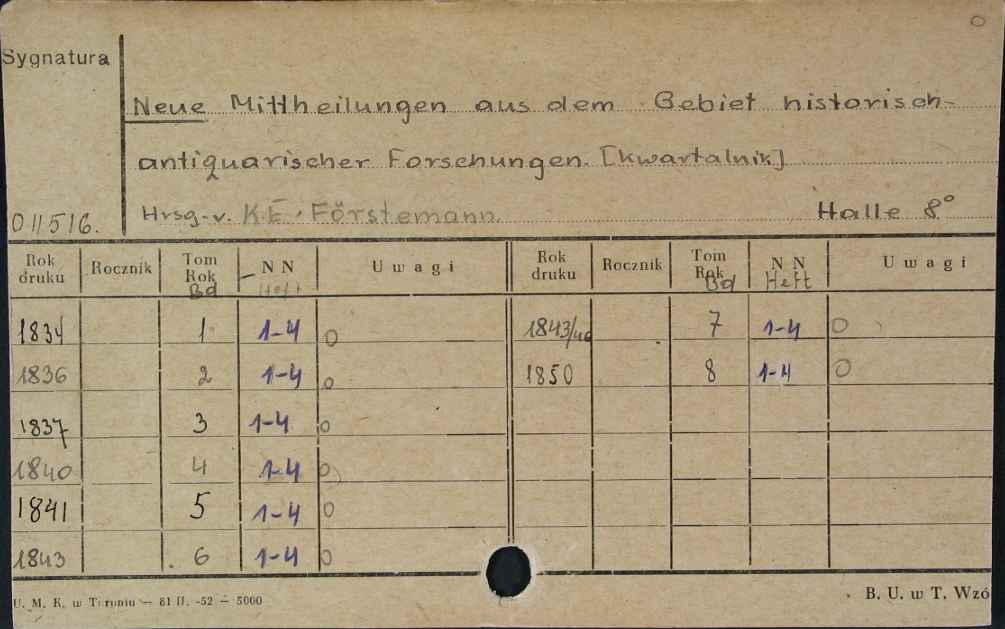 O
Sygnatura
Neue Mittheilungen aus dem Gebiet historisch-
antiquarischer Forschungen. [kwartalnik]
011516.
Hrsg. v. K.E. Förstemann. Halle 8°
Rok druku Rocznik Tom Rok Bd NN Heft Uwagi Rok druku Rocznik Tom Rok Bd NN Heft Uwagi
1834 1 1-4 O 1843/46 7 1-4 O
1836 2 1-4 O 1850 8 1-4 O
1837 3 1-4 O
1840 4 1-4 O
1841 5 1-4 O
1843 6 1-4 O
U. M. K. w Toruniu — 81 II. -52 — 5000
B. U. w T. Wzó